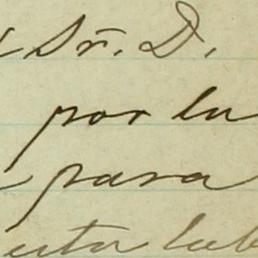 Sr. D.
por la
para